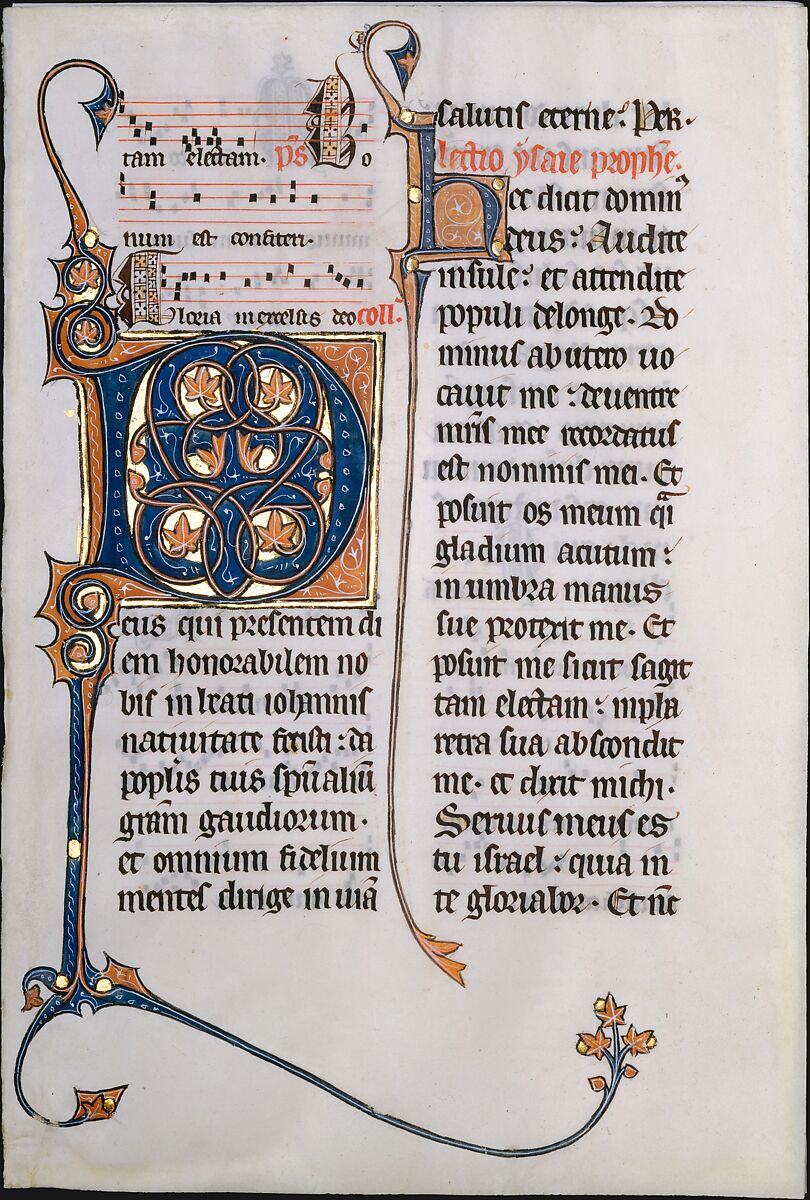 tam electam. p̄s Bo
num est confiteri.
Gloria in excelsis deo coll̄.
Deus qui presentem di
em honorabilem no
bis in beati iohannis
natiuitate fecisti: da
popl̄is tuis sp̄ualiū
gr̄am gaudiorum.
et omnium fidelium
mentes dirige in uiā
salutis eterne: Per.
lectio ysaie prophe.
Hec dicit dominꝰ
deus: Audite
insule: et attendite
populi delonge. Do
minus ab utero uo
cauit me: de uentre
mr̄is mee recordatus
est nominis mei. Et
posuit os meum q̄i
gladium acutum:
in umbra manus
sue protexit me. Et
posuit me sicut sagit
tam electam: in pha
retra sua abscondit
me. et dixit michi.
Seruus meus es
tu israel: quia in
te gloriabor. Et nc̄